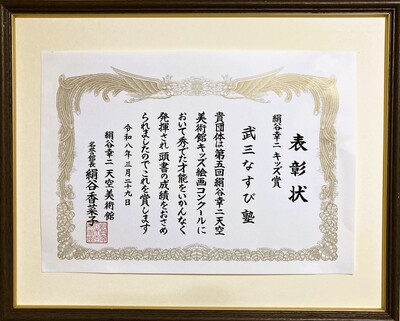 表彰状
絹谷幸二 キッズ賞
武三なすび塾
貴団体は第五回絹谷幸二天空
美術館キッズ絵画コンクールに
おいて秀でた才能をいかんなく
発揮され頭書の成績をおさめ
られましたのでこれを賞します
令和八年三月二十九日
絹谷幸二 天空美術館
名誉館長 絹谷香菜子